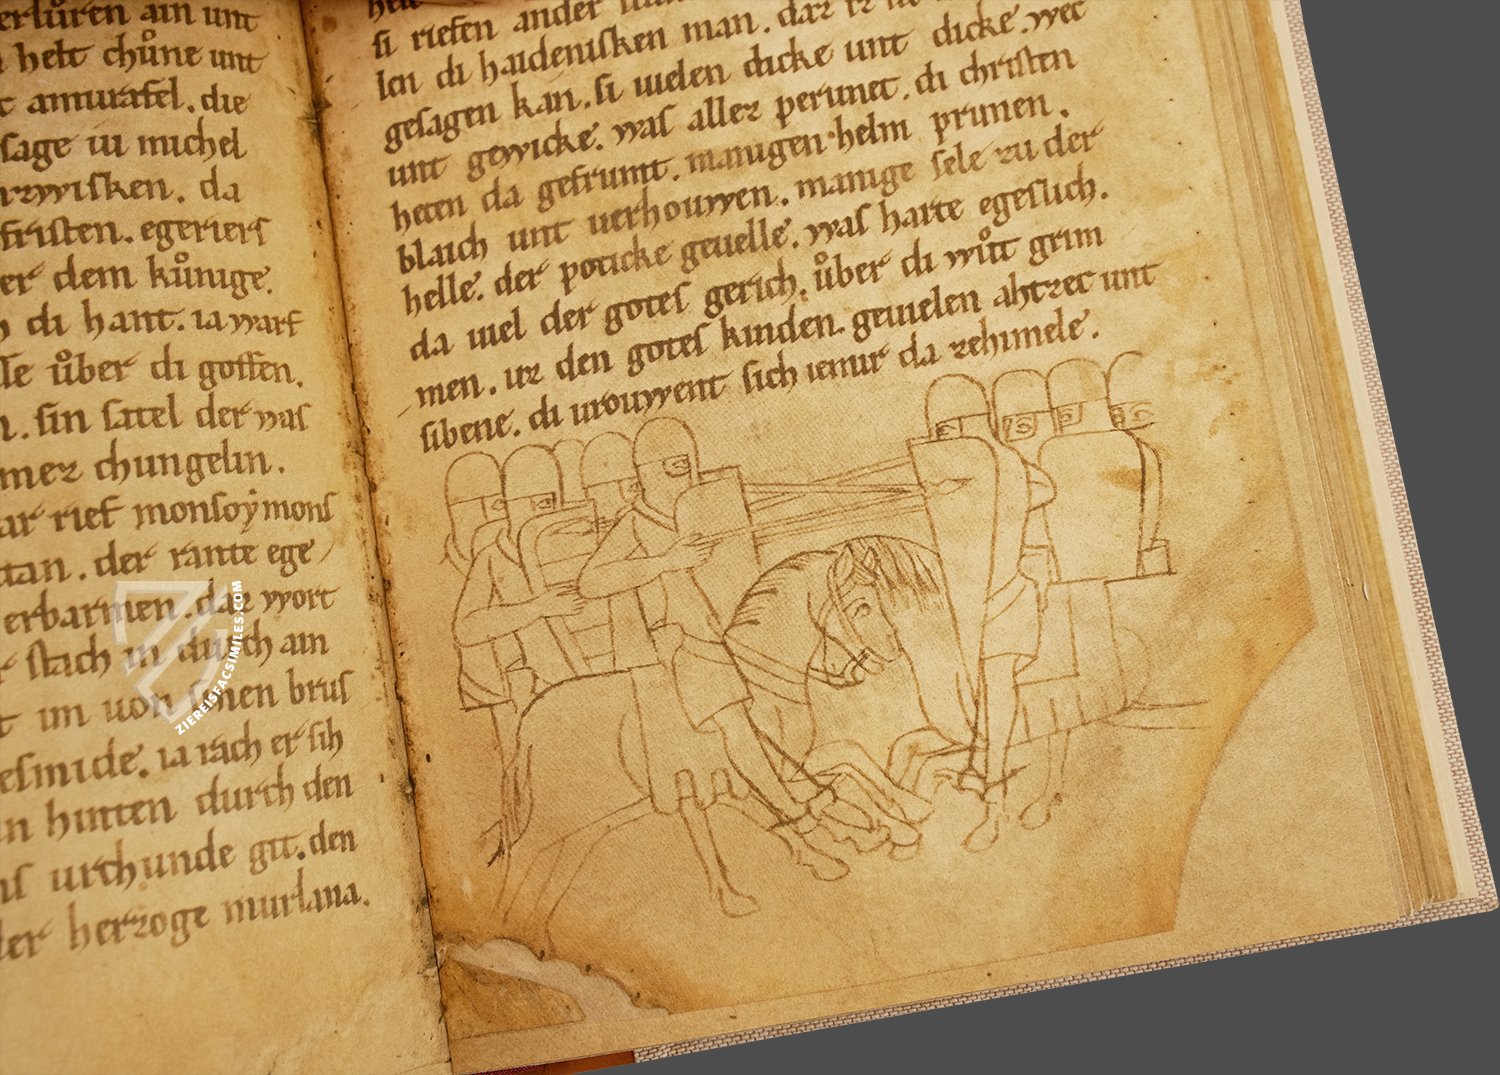 erlůren ain unt
helt chůne unt
amurafel. die
sage iu michel
rzwisken. da
fristen. egeriers
er dem kůnige.
di hant. ia warf
ůber di goffen.
sin satel der was
mer chungelin.
ar rief monsoÿ mons
tan. der rante ege
erbarmen. daz wort
stach in durch ain
im uon sinen brus
esmide. ia rach er sih
hinten durch den
urchunde git. den
der herzoge murlana.
si riefen ander
len di haidenisken man. daz iz
gesagen kan. si uielen dicke unt dicke. wec
unt gewicke. was allez perunet. di christen
heten da gefrumt. manigen helm prunen.
blaich unt uerhouwen. manige sele zu der
helle. der poticke geuelle. was harte egeslich.
da uiel der gotes gerich. ůber di wůt grim
men. uz den gotes kinden. geuielen ahtzec unt
sibene. di urouwent sich iemir da zehimele.
ZIEREISFACSIMILES.COM